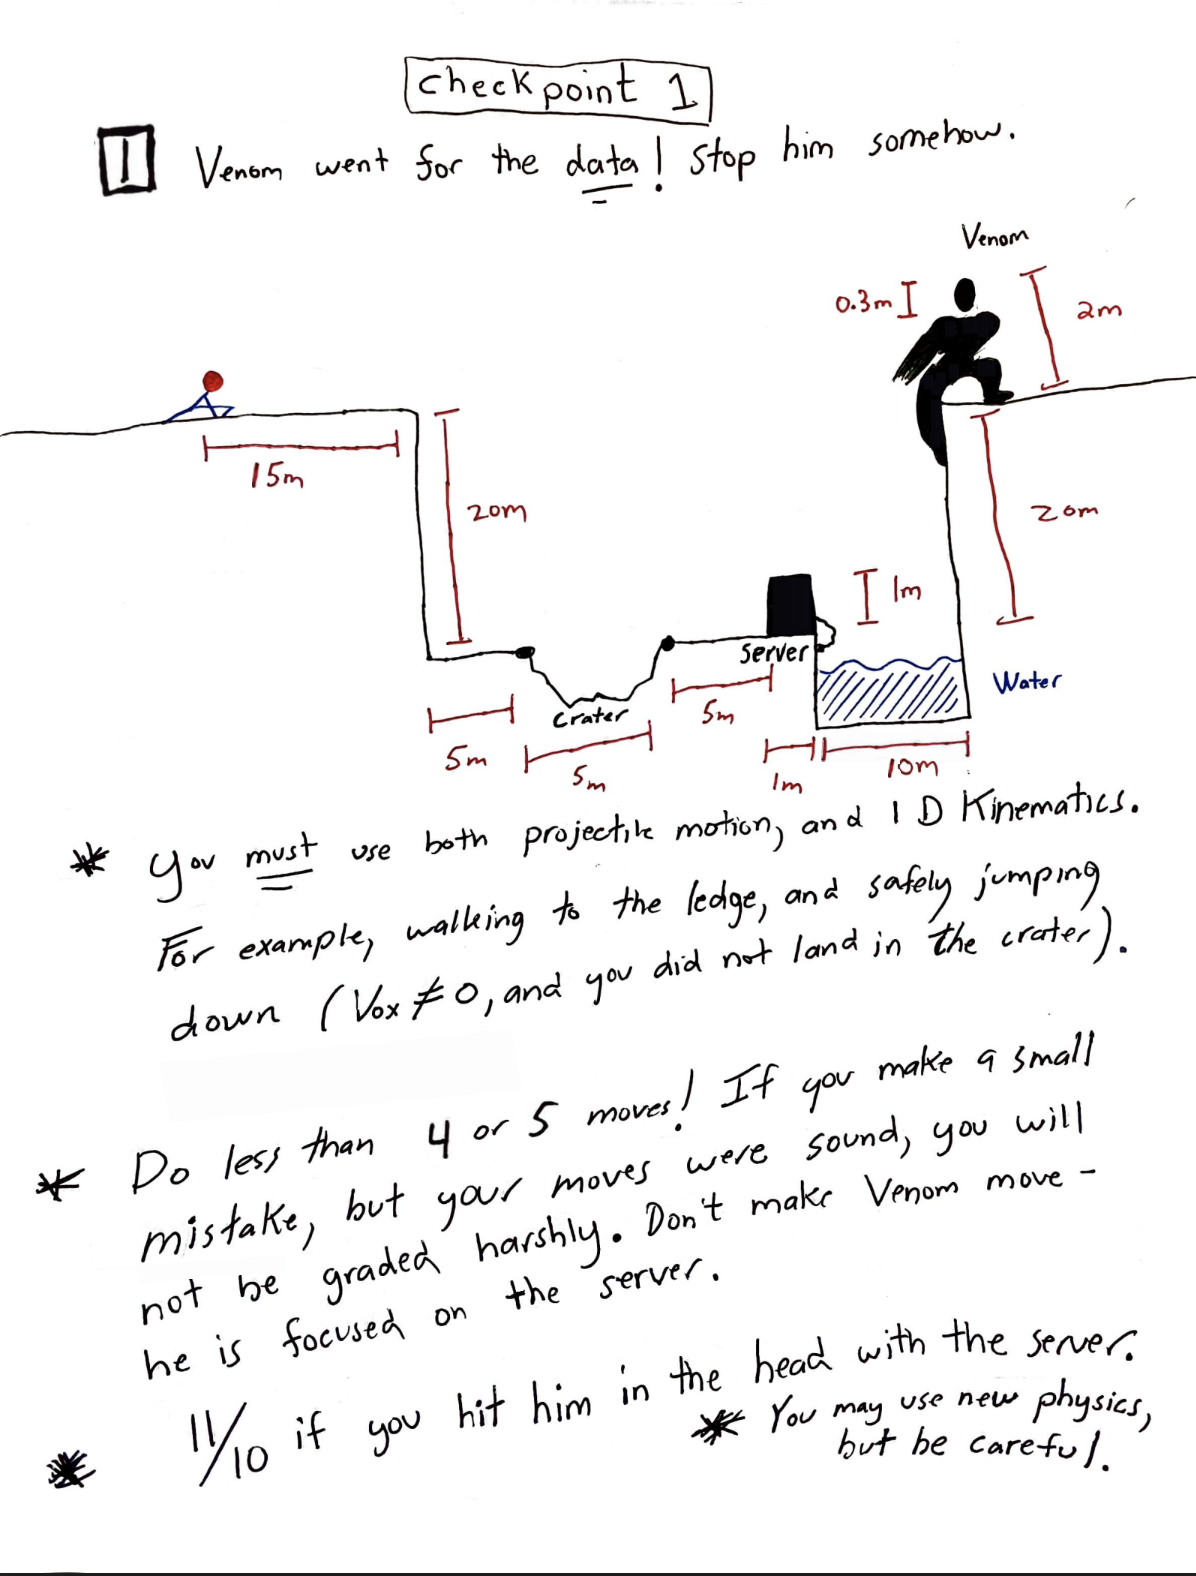 Checkpoint 1
1 Venom went for the data! Stop him somehow.
Venom
0.3m
2m
15m
20m
20m
1m
Server
Water
Crater
5m
5m
5m
1m
10m
* You must use both projectile motion, and 1D Kinematics.
For example, walking to the ledge, and safely jumping
down (Vox ≠ 0, and you did not land in the crater).
* Do less than 4 or 5 moves! If you make a small
mistake, but your moves were sound, you will
not be graded harshly. Don't make Venom move -
he is focused on the server.
* 11/10 if you hit him in the head with the server.
* You may use new physics,
but be careful.